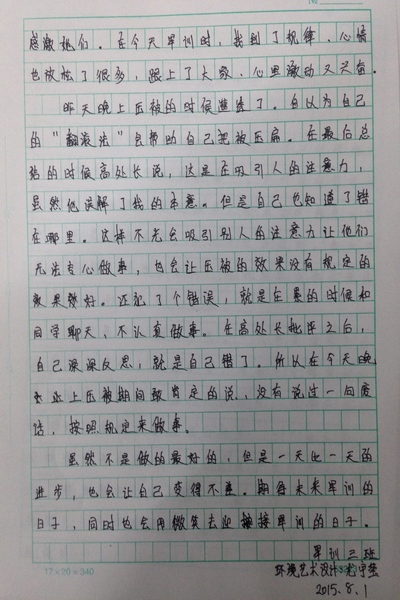 №
感激他们。在今天军训时，我到了规律，心情
也放松了很多，跟上了大家，心里激动又兴奋。
昨天晚上压被的时候遭遇了。自以为自己
的“翻滚法”会帮助自己把被压扁。在最后总
结的时候高处长说，这是在吸引人的注意力，
虽然他误解了我的本意。但是自己也知道了错
在哪里。这样不光会吸引别人的注意力让他们
无法专心做事，也会让压被的效果没有规定的
效果好。还犯了个错误，就是在叠的时候和
同学聊天，不认真做事。在高处长批评之后，
自己深深反思，就是自己错了。所以在今天晚
上压被期间敢肯定的说，没有说过一句废
话，按照规定来做事。
虽然不是做的最好的，但是一天比一天的
进步，也会让自己变得不差。期待未来军训的
日子，同时也会用微笑去迎接军训的日子。
军训三班
环境艺术设计
2015.8.1
17×20=340